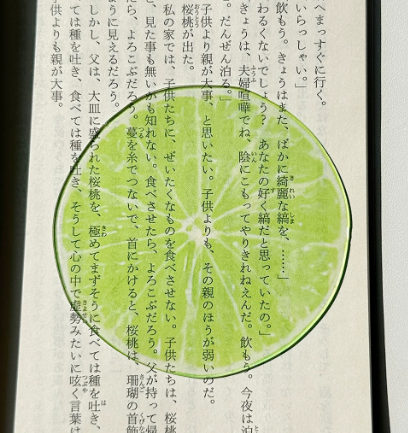 へまっすぐに行く。
いらっしゃい。」
飲もう。きょうはまた、ばかに綺麗な縞を、……」
わるくないでしょう? あなたの好く縞だと思っていたの。」
きょうは、夫婦喧嘩でね、陰にこもってやりきれねえんだ。飲もう。今夜は泊
。だんぜん泊る。」
子供より親が大事、と思いたい。子供よりも、その親のほうが弱いのだ。
桜桃が出た。
私の家では、子供たちに、ぜいたくなものを食べさせない。子供たちは、桜桃
、見た事も無いかも知れない。食べさせたら、よろこぶだろう。父が持って帰
たら、よろこぶだろう。蔓を糸でつないで、首にかけると、桜桃は、珊瑚の首飾
ように見えるだろう。
しかし、父は、大皿に盛られた桜桃を、極めてまずそうに食べては種を吐き、
ては種を吐き、食べては種を吐き、そうして心の中で虚勢みたいに呟く言葉は
供よりも親が大事。